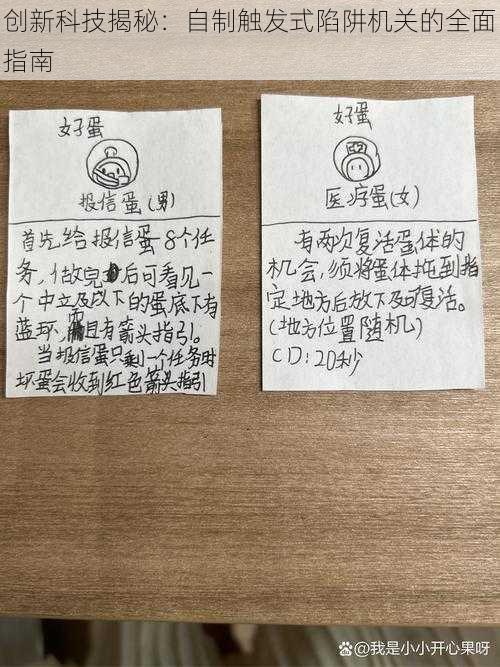 创新科技揭秘：自制触发式陷阱机关的全面
指南
好蛋
报信蛋(男)
首先,给报信蛋8个任
务,做完后可看见一
个中立及以下的蛋底下有
蓝环,而且有箭头指引。
当报信蛋只剩1个任务时
坏蛋会收到红色箭头指引
好蛋
医疗蛋(女)
有两次复活蛋体的
机会,须将蛋体拖到指
定地方后放下及可复活。
(地方位置随机)
CD:20秒
@我是小小开心果呀